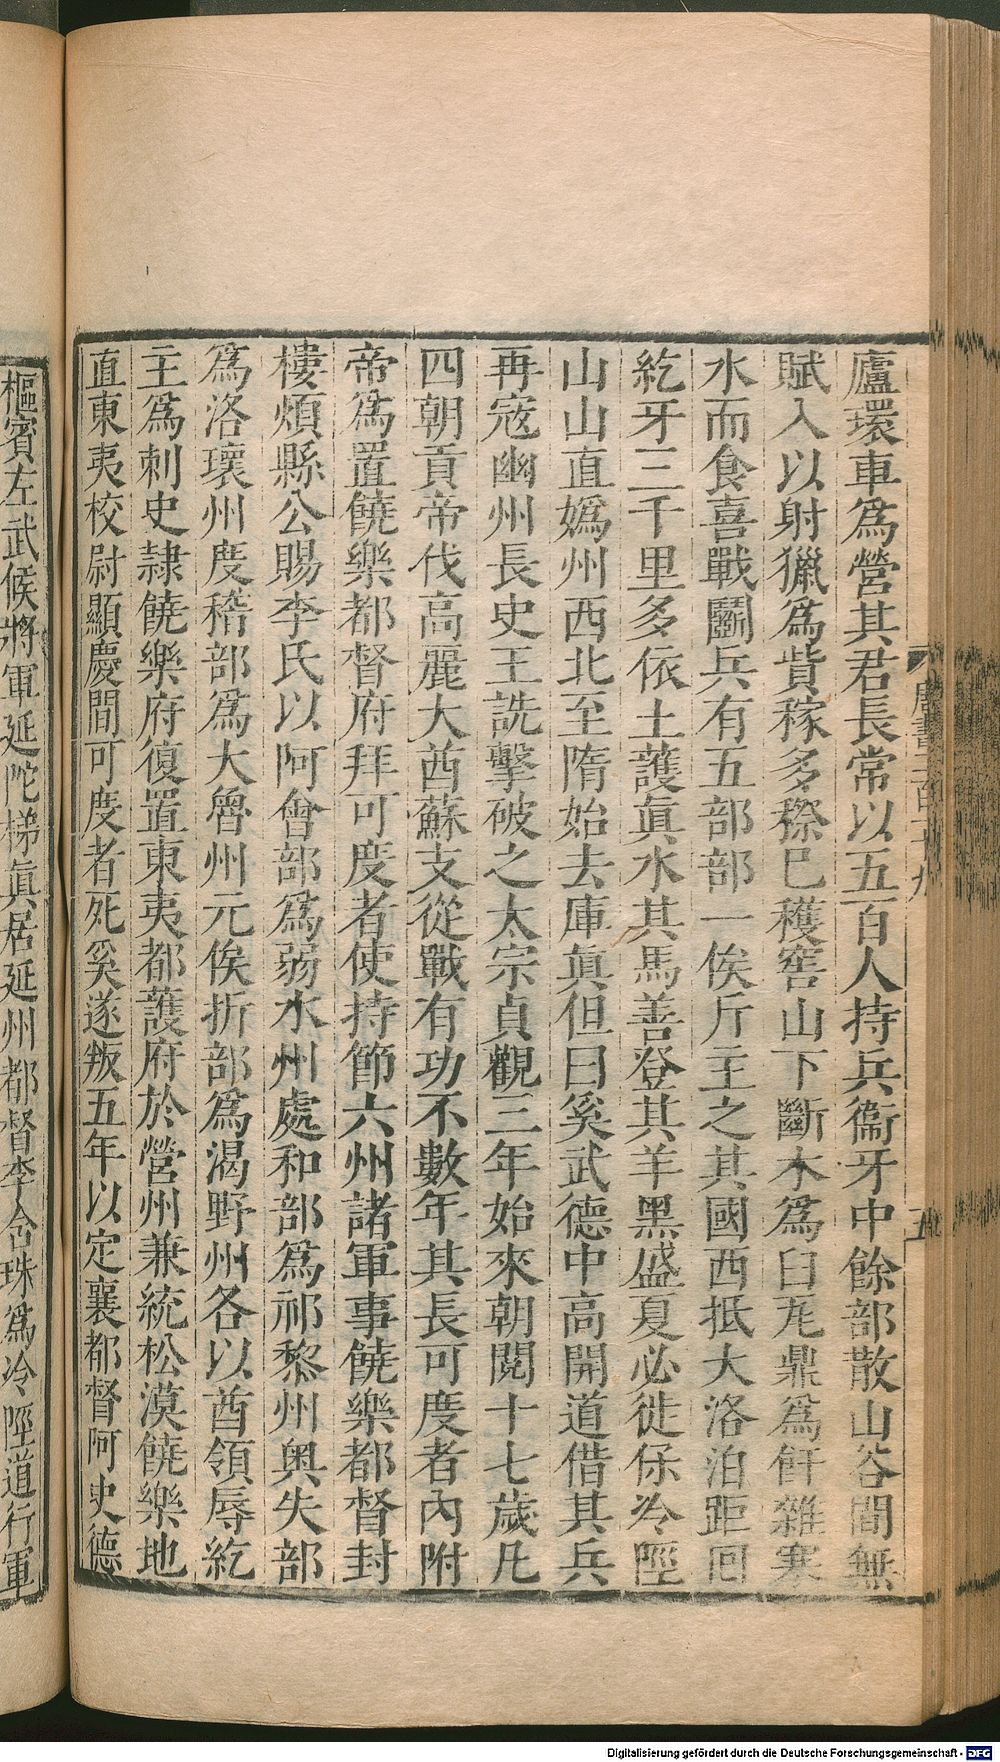 廬環車爲營其君長常以五百人持兵衞牙中餘部散山谷間無
賦入以射獵爲貲稼多穄已穫窖山下斷木爲臼瓦鼎爲飦雜寒
水而食喜戰鬭兵有五部部一俟斤主之其國西抵大洛泊距回
紇牙三千里多依土護眞水其馬善登其羊黑盛夏必徙保冷陘
山山直嬀州西北至隋始去庫眞但曰奚武德中高開道借其兵
再寇幽州長史王詵擊破之太宗貞觀三年始來朝閱十七歲凡
四朝貢帝伐高麗大酋蘇支從戰有功不數年其長可度者內附
帝爲置饒樂都督府拜可度者使持節六州諸軍事饒樂都督封
樓煩縣公賜李氏以阿會部爲弱水州處和部爲祁黎州奥失部
爲洛瓌州度稽部爲大魯州元俟折部爲渴野州各以酋領辱紇
主爲刺史隷饒樂府復置東夷都護府於營州兼統松漠饒樂地
直東夷校尉顯慶間可度者死奚遂叛五年以定襄都督阿史德
樞賓左武候將軍延陀梯眞居延州都督李含珠爲冷陘道行軍
五
Digitalisierung gefördert durch die Deutsche Forschungsgemeinschaft - DFG